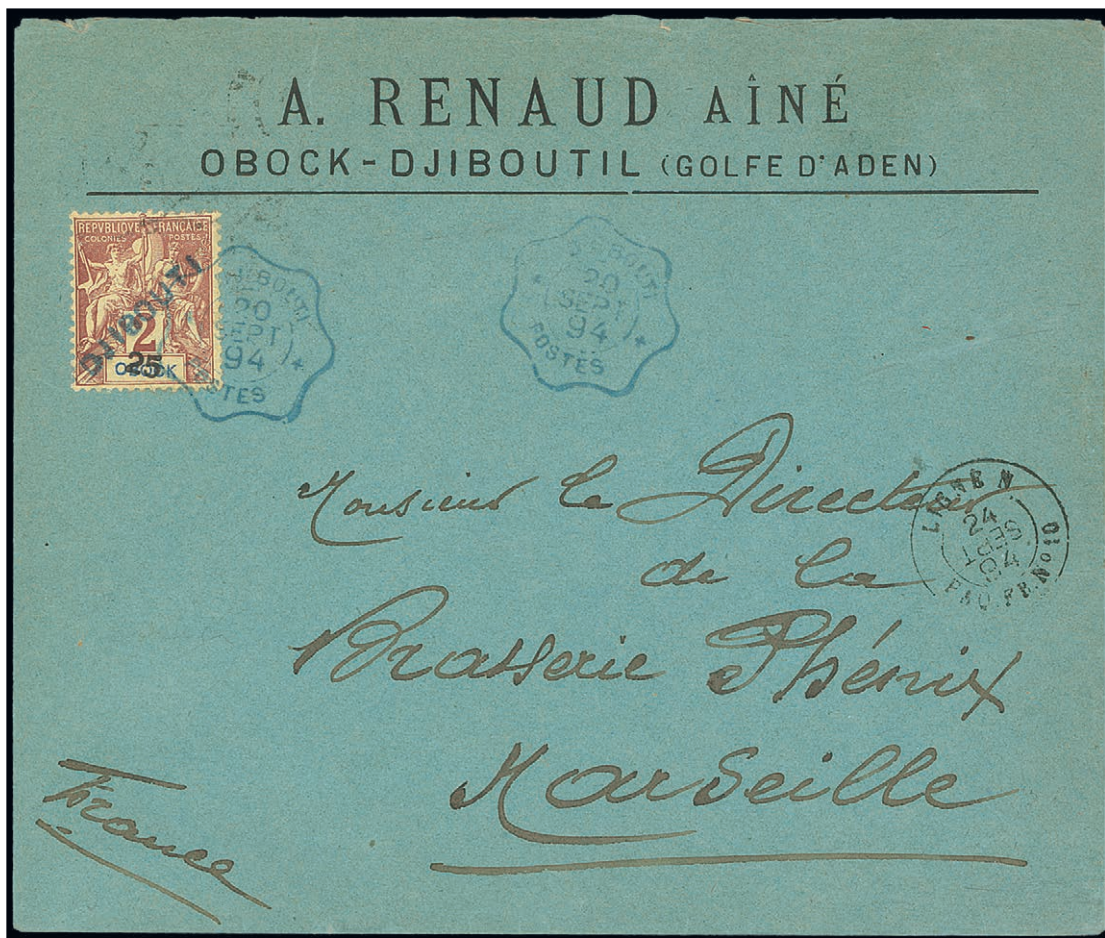 A. RENAUD AÎNÉ
OBOCK-DJIBOUTIL (GOLFE D'ADEN)
REPVBLIQUE FRANÇAISE
COLONIES POSTES
DJIBOUTI
2
25
OBOCK
DJIBOUTI
20
SEPT
94
POSTES
DJIBOUTI
20
SEPT
94
POSTES
LIGNE N
24
SEPT
94
PAQ. FR. Nº10
Monsieur le Directeur
de la
Brasserie Phénix
Marseille
France